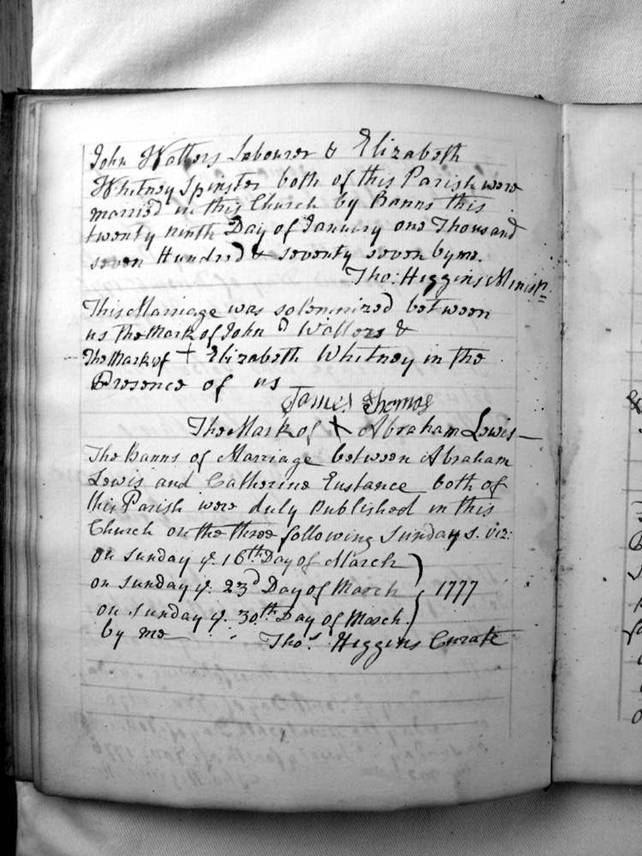 John Watters Labourer & Elizabeth
Whitney Spinster both of this Parish were
married in this Church by Banns this
twenty ninth Day of January one Thousand
seven Hundred & seventy seven by me.
Tho: Higgins Minisr
This Marriage was solemnized between
us The Mark of John Watters &
The Mark of + Elizabeth Whitney in the
Presence of us
James Thomas
The Mark of + Abraham Lewis
The Banns of Marriage between Abraham
Lewis and Catherine Eustance both of
this Parish were duly published in this
Church on the three following Sundays. viz:
on Sunday ye. 16th Day of March
on Sunday ye. 23d Day of March } 1777
on Sunday ye. 30th Day of March.
by me Thos. Higgins Curate